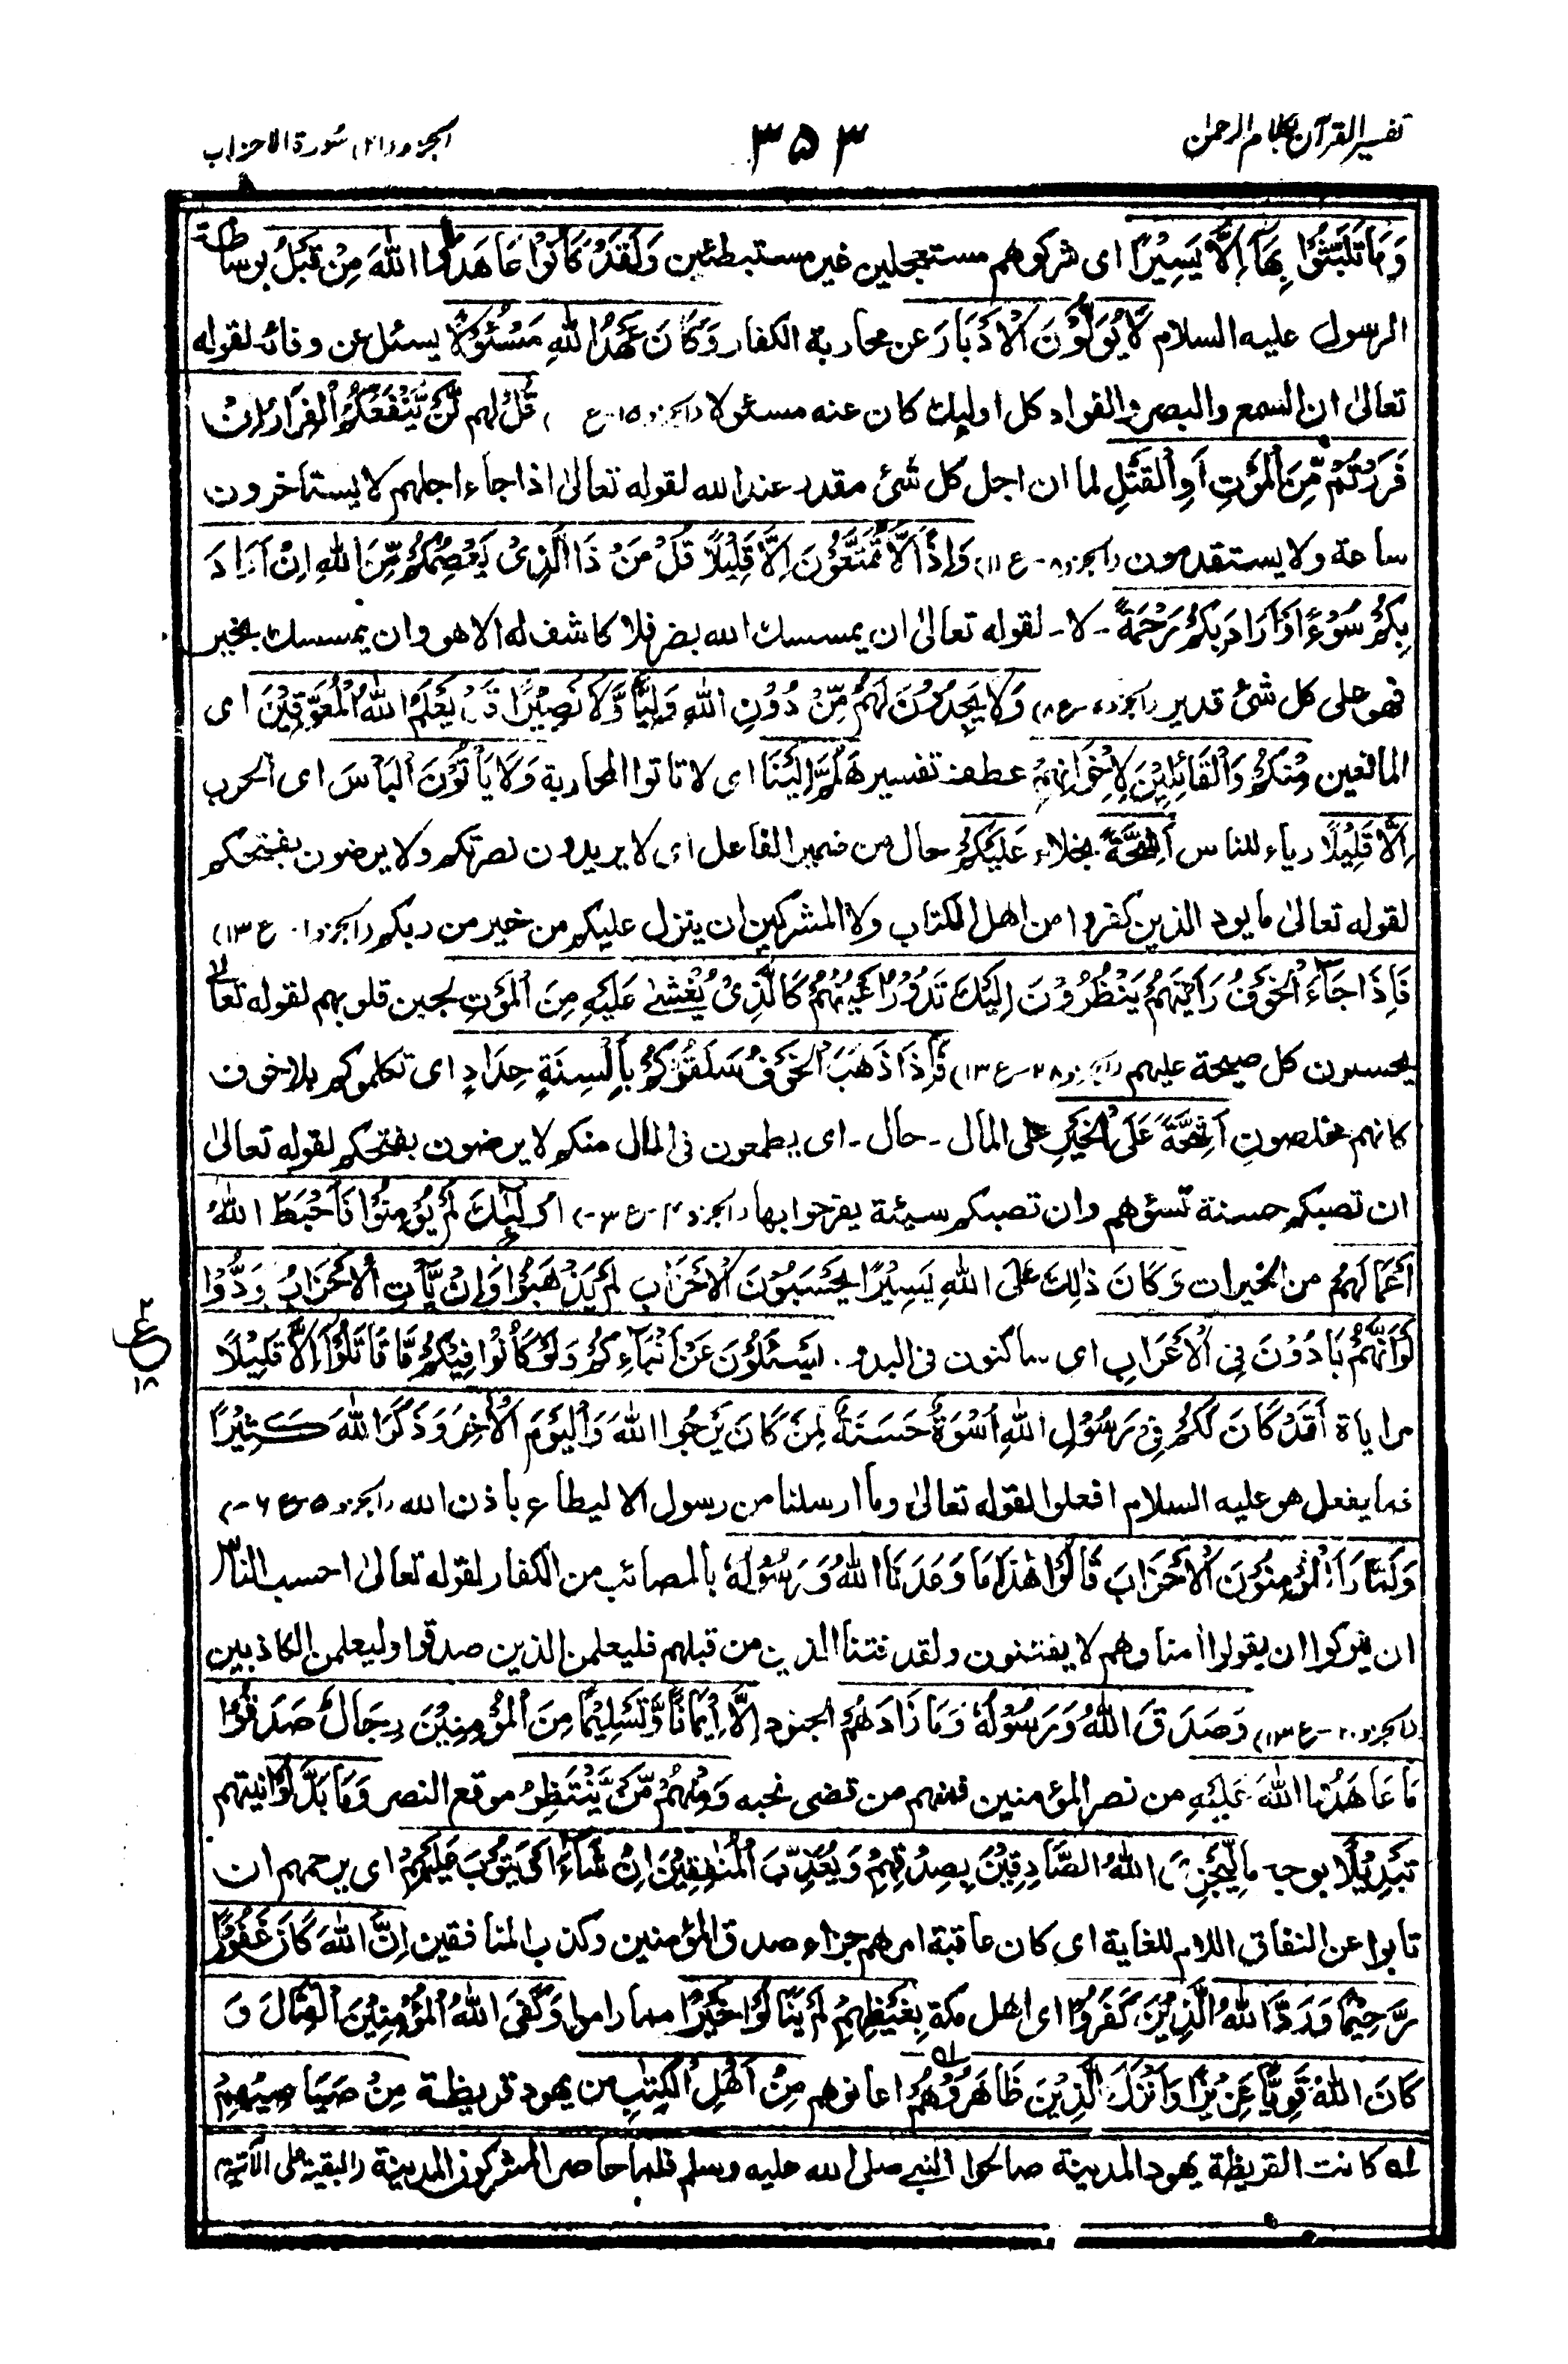 تفسير القرآن بكلام الرحمن
٣٥٣
الجزو (٢١) سورة الاحزاب
وَمَا تَلَبَّثُوْا بِهَا اِلَّا يَسِيْرًا اى شركوهم مستعجلين غير مستبطئين وَلَقَدْ كَانُوْا عَاهَدُوا اللهَ مِنْ قَبْلُ بوساطة
الرسول عليه السلام لَا يُوَلُّوْنَ الْاَدْبَارَ عن محاربة الكفار وَكَانَ عَهْدُ اللهِ مَسْئُوْلًا يسئل عن وفائه لقوله
تعالىٰ ان السمع والبصر والفواد كل اوليك كان عنه مسئولا (الجزو ١٥-ع ) قُلْ لهم لَّنْ يَّنْفَعَكُمُ الْفِرَارُ اِنْ
فَرَرْتُمْ مِّنَ الْمَوْتِ اَوِ الْقَتْلِ لما ان اجل كل شئ مقدر عند الله لقوله تعالىٰ اذا جاء اجلهم لا يستأخرون
ساعة ولا يستقدمون (الجزو ٨-ع ١١) وَاِذًا لَّا تُمَتَّعُوْنَ اِلَّا قَلِيْلًا قُلْ مَنْ ذَا الَّذِىْ يَعْصِمُكُمْ مِّنَ اللهِ اِنْ اَرَادَ
بِكُمْ سُوْءًا اَوْ اَرَادَ بِكُمْ رَحْمَةً - لا - لقوله تعالىٰ ان يمسسك الله بضر فلا كاشف له الا هو وان يمسسك بخير
فهو على كل شئ قدير (الجزو ٧-ع ٨) وَلَا يَجِدُوْنَ لَهُمْ مِّنْ دُوْنِ اللهِ وَلِيًّا وَّلَا نَصِيْرًا قَدْ يَعْلَمُ اللهُ الْمُعَوِّقِيْنَ اى
المانعين مِنْكُمْ وَالْقَائِلِيْنَ لِاِخْوَانِهِمْ عطف تفسير هَلُمَّ اِلَيْنَا اى لا تاتوا المحاربة وَلَا يَأْتُوْنَ الْبَأْسَ اى الحرب
اِلَّا قَلِيْلًا رياء للناس اَشِحَّةً بخلاء عَلَيْكُمْ حال من ضمير الفاعل اى لا يريدون نصرتكم ولا يرضون بفتحكم
لقوله تعالىٰ ما يود الذين كفروا من اهل الكتاب ولا المشركين ان ينزل عليكم من خير من ربكم (الجزو ١- ع ١٣)
فَاِذَا جَاءَ الْخَوْفُ رَاَيْتَهُمْ يَنْظُرُوْنَ اِلَيْكَ تَدُوْرُ اَعْيُنُهُمْ كَالَّذِىْ يُغْشىٰ عَلَيْهِ مِنَ الْمَوْتِ لجبن قلوبهم لقوله تعالىٰ
يحسبون كل صيحة عليهم (الجزو ٢٨-ع ١٣) فَاِذَا ذَهَبَ الْخَوْفُ سَلَقُوْكُمْ بِاَلْسِنَةٍ حِدَادٍ اى تكلموكم بلا خوف
كانهم مخلصون اَشِحَّةً عَلَى الْخَيْرِ على المال - حال - اى يطمعون فى المال منكم لا يرضون بفتحكم لقوله تعالىٰ
ان تصبكم حسنة تسؤهم وان تصبكم سيئة يفرحوا بها (الجزو ٤-ع ٣-) اُولٰٓئِكَ لَمْ يُؤْمِنُوْا فَاَحْبَطَ اللهُ
اَعْمَالَهُمْ من الخيرات وَكَانَ ذٰلِكَ عَلَى اللهِ يَسِيْرًا يَحْسَبُوْنَ الْاَحْزَابَ لَمْ يَذْهَبُوْا وَاِنْ يَّأْتِ الْاَحْزَابُ وَدُّوْا
لَوْ اَنَّهُمْ بَادُوْنَ فِى الْاَعْرَابِ اى ساكنون فى البدو. يَسْئَلُوْنَ عَنْ اَنْبَاءِكُمْ وَلَوْ كَانُوْا فِيْكُمْ مَّا قَاتَلُوْا اِلَّا قَلِيْلًا
٢
ع
١٨
مراياة لَقَدْ كَانَ لَكُمْ فِىْ رَسُوْلِ اللهِ اُسْوَةٌ حَسَنَةٌ لِمَنْ كَانَ يَرْجُوا اللهَ وَالْيَوْمَ الْاٰخِرَ وَذَكَرَ اللهَ كَثِيْرًا
فما يفعل هو عليه السلام افعلوا لقوله تعالىٰ وما ارسلنا من رسول الا ليطاع باذن الله (الجزو ٥-ع ٦-)
وَلَمَّا رَاَ الْمُؤْمِنُوْنَ الْاَحْزَابَ قَالُوْا هٰذَا مَا وَعَدَنَا اللهُ وَرَسُوْلُهٗ بالمصائب من الكفار لقوله تعالىٰ احسب الناس
ان يتركوا ان يقولوا اٰمنا وهم لا يفتنون ولقد فتنا الذين من قبلهم فليعلمن الذين صدقوا وليعلمن الكاذبين
(الجزو ٢٠-ع ١٣) وَصَدَقَ اللهُ وَرَسُوْلُهٗ وَمَا زَادَهُمْ الجنود اِلَّا اِيْمَانًا وَّتَسْلِيْمًا مِنَ الْمُؤْمِنِيْنَ رِجَالٌ صَدَقُوْا
مَا عَاهَدُوا اللهَ عَلَيْهِ من نصر المؤمنين فمنهم من قضى نحبه وَمِنْهُمْ مَّنْ يَّنْتَظِرُ موقع النصر وَمَا بَدَّلُوْا نيتهم
تَبْدِيْلًا بوجه ما لِّيَجْزِىَ اللهُ الصَّادِقِيْنَ بِصِدْقِهِمْ وَيُعَذِّبَ الْمُنٰفِقِيْنَ اِنْ شَاءَ اَوْ يَتُوْبَ عَلَيْهِمْ اى يرحمهم ان
تابوا عن النفاق اللام للغاية اى كان عاقبة امرهم جزاء صدق المؤمنين وكذب المنافقين اِنَّ اللهَ كَانَ غَفُوْرًا
رَّحِيْمًا وَرَدَّ اللهُ الَّذِيْنَ كَفَرُوْا اى اهل مكة بِغَيْظِهِمْ لَمْ يَنَالُوْا خَيْرًا مما راموا وَكَفَى اللهُ الْمُؤْمِنِيْنَ الْقِتَالَ وَ
كَانَ اللهُ قَوِيًّا عَزِيْزًا وَاَنْزَلَ الَّذِيْنَ ظَاهَرُوْهُمْ اعانوهم مِنْ اَهْلِ الْكِتٰبِ من يهود قريظة مِنْ صَيَاصِيْهِمْ
له كانت القريظة يهود المدينة صالحوا النبى صلى الله عليه وسلم فلما حاصر المشركون المدينة (البقية على الآتية)